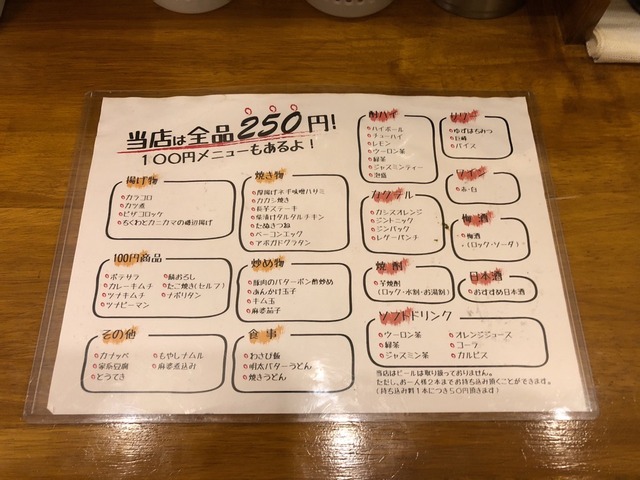 当店は全品250円!
100円メニューもあるよ!
揚げ物
カラコロ
カツ煮
ピザコロッケ
ちくわとカニカマの磯辺揚げ
焼き物
厚揚げネギ味噌ハサミ
カカシ焼き
長芋ステーキ
柴漬けタルタルチキン
たぬきつね
ベーコンエッグ
アボガドグラタン
100円商品
ポテサラ
カレーキムチ
ツナキムチ
ツナピーマン
鯖おろし
たこ焼き(セルフ)
ナポリタン
炒め物
豚肉のバターポン酢炒め
あんかけ玉子
キム玉
麻婆茄子
その他
カナッペ
家系豆腐
とうてき
もやしナムル
麻婆煮込み
食事
わさび飯
明太バターうどん
焼きうどん
酎ハイ
ハイボール
チューハイ
レモン
ウーロン茶
緑茶
ジャスミンティー
泡盛
サワー
ゆずはちみつ
巨峰
バイス
カクテル
カシスオレンジ
ジントニック
ジンバック
レゲーパンチ
ワイン
赤・白
梅酒
梅酒
(ロック・ソーダ)
焼酎
芋焼酎
(ロック・水割・お湯割)
日本酒
おすすめ日本酒
ソフトドリンク
ウーロン茶
緑茶
ジャスミン茶
オレンジジュース
コーラ
カルピス
当店はビールは取り扱っておりません。
ただし、お一人様2本までお持ち込み頂くことができます。
(持ち込み料1本につき50円頂きます)